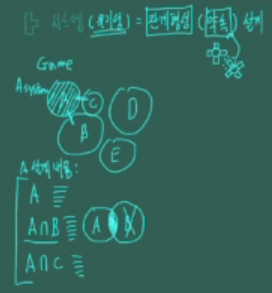 시스템 (유기성) = 관계형성 (약속) 설계
Game
A system
C
D
B
E
A 설계 내용:
A
A∩B A B
A∩C